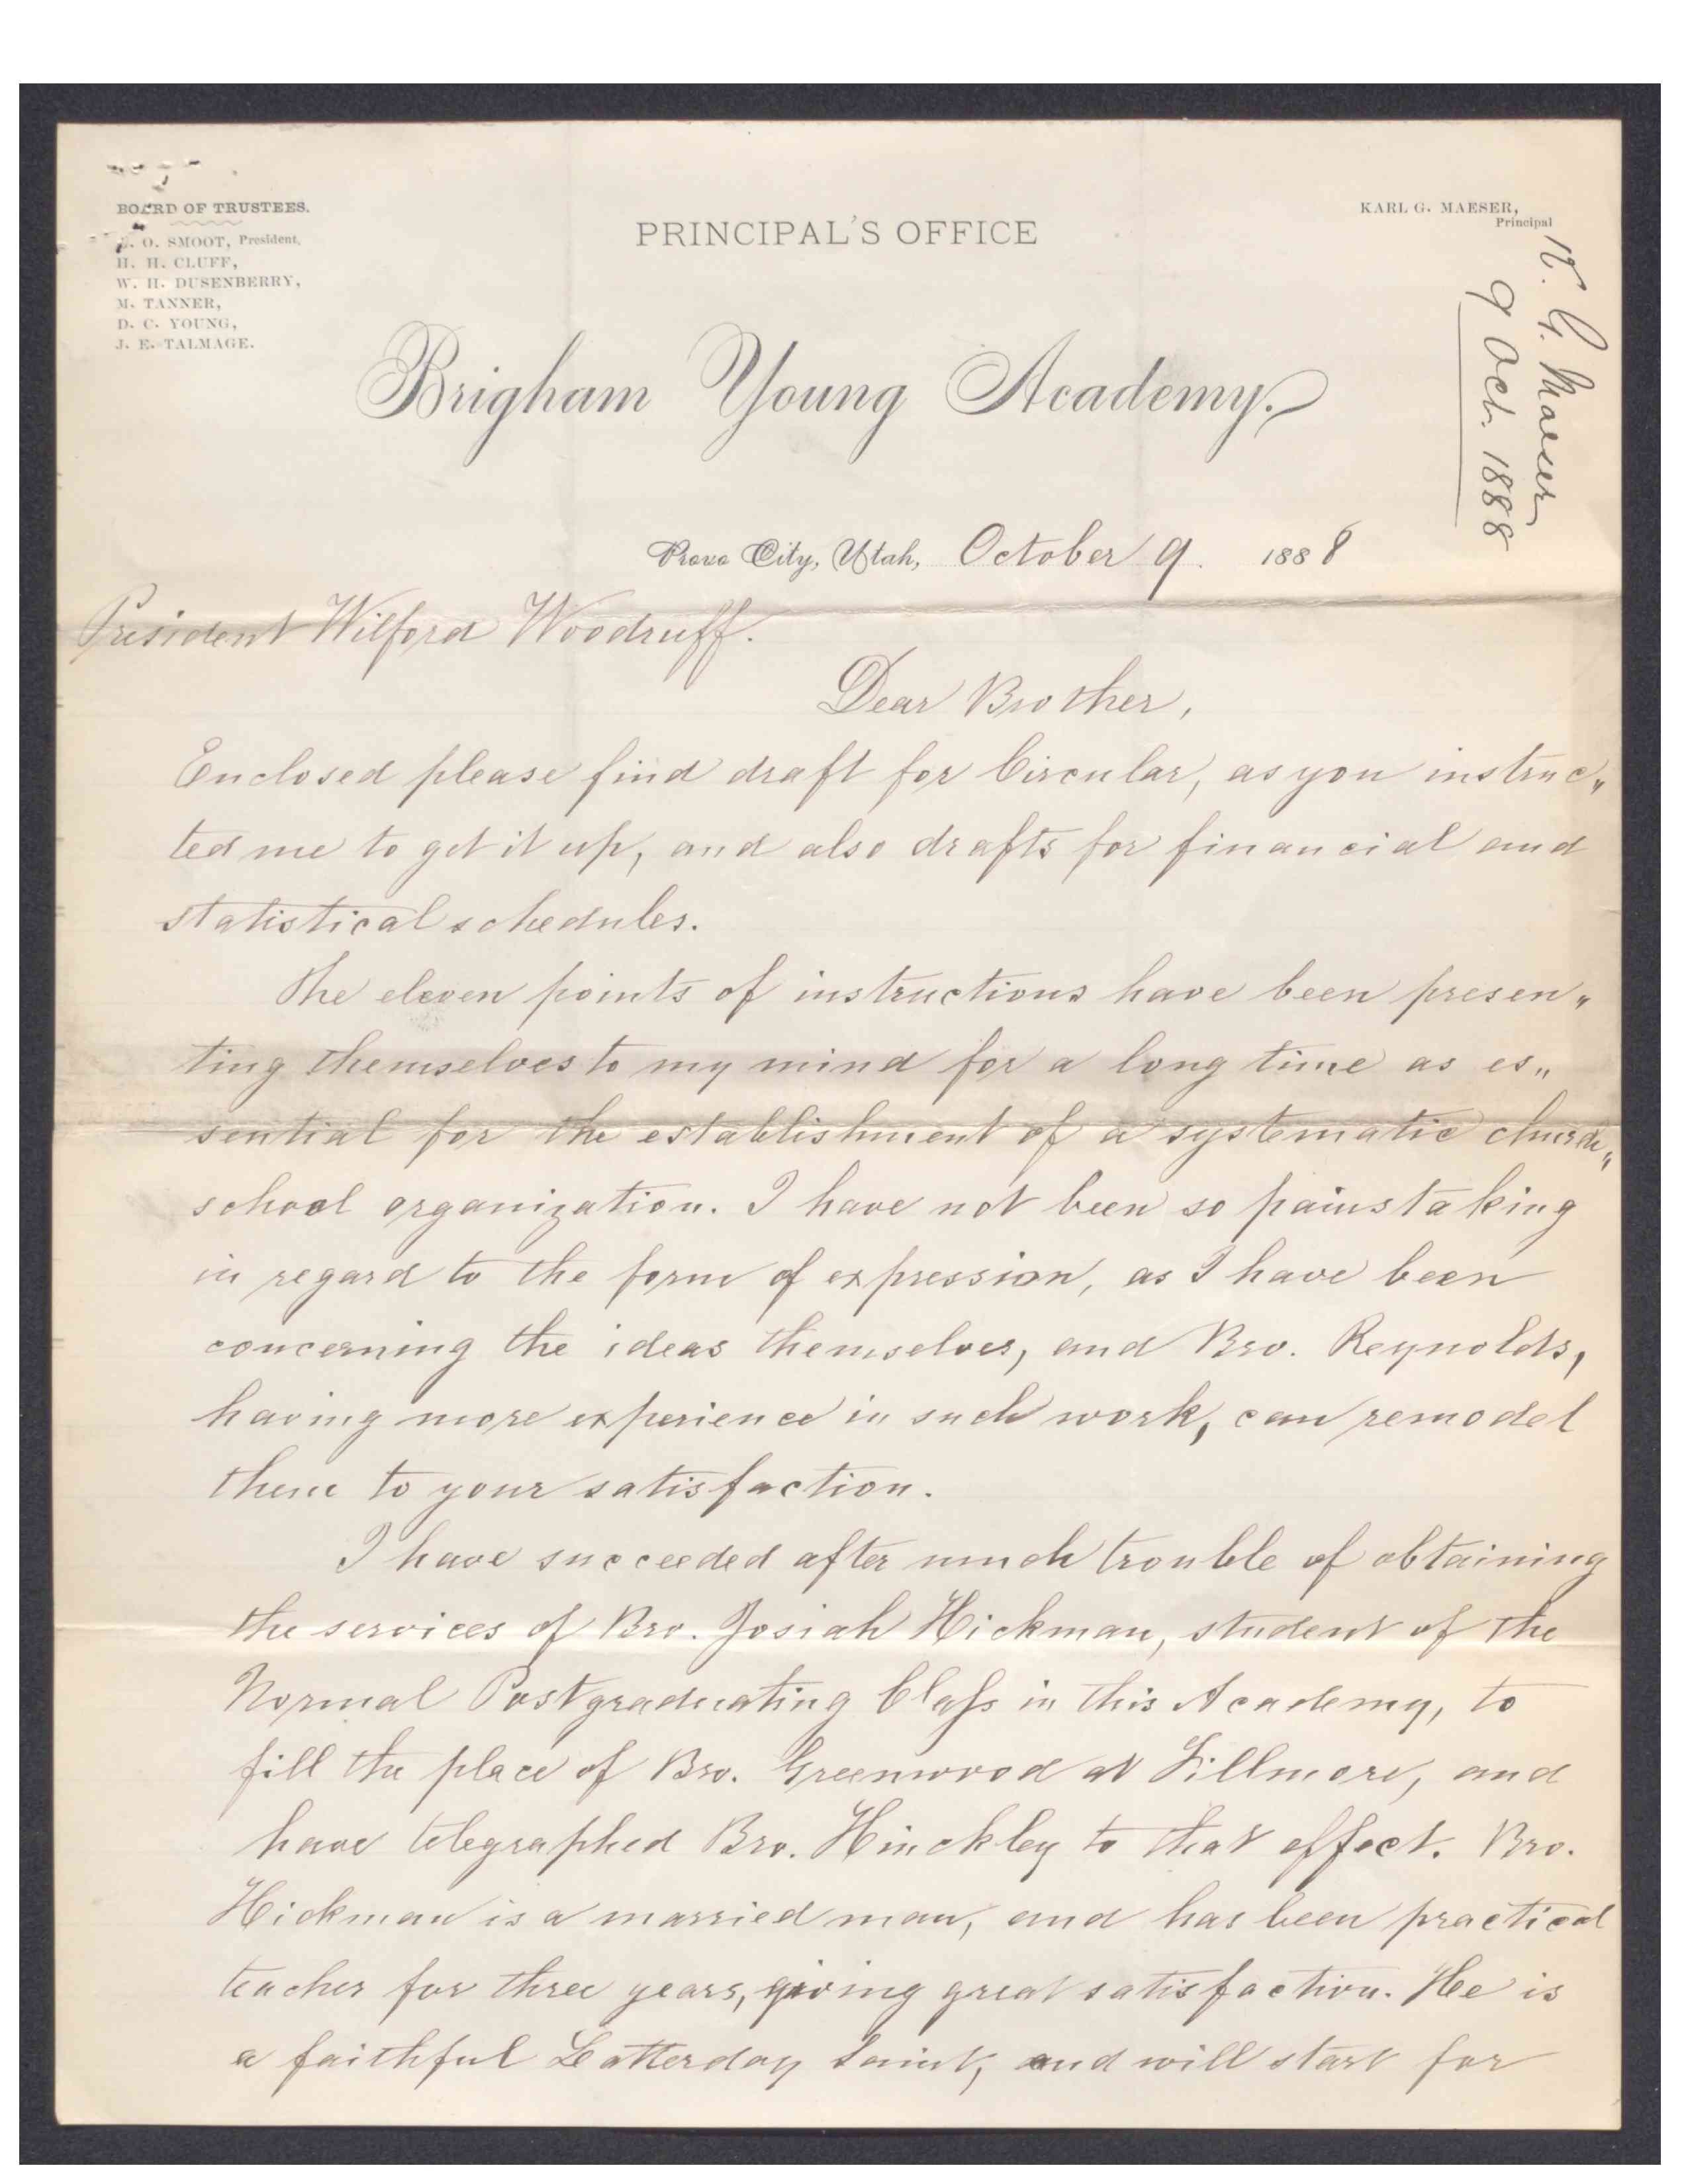 BOARD OF TRUSTEES.
A. O. SMOOT, President,
H. H. CLUFF,
W. H. DUSENBERRY,
M. TANNER,
D. C. YOUNG,
J. E. TALMAGE.
PRINCIPAL'S OFFICE
KARL G. MAESER,
Principal
K. G. Maeser
9 Oct. 1888
Brigham Young Academy.
Provo City, Utah, October 9. 1888
President Wilford Woodruff.
Dear Brother,
Enclosed please find draft for Circular, as you instruc„
ted me to get it up, and also drafts for financial and
statistical schedules.
The eleven points of instructions have been presen„
ting themselves to my mind for a long time as es„
sential for the establishment of a systematic church„
school organization. I have not been so painstaking
in regard to the form of expression, as I have been
concerning the ideas themselves, and Bro. Reynolds,
having more experience in such work, can remodel
them to your satisfaction.
I have succeeded after much trouble of obtaining
the services of Bro. Josiah Hickman, student of the
Normal Postgraduating Class in this Academy, to
fill the place of Bro. Greenwood at Fillmore, and
have telegraphed Bro. Hinckley to that effect. Bro.
Hickman is a married man, and has been practical
teacher for three years, giving great satisfaction. He is
a faithful Latterday Saint, and will start for